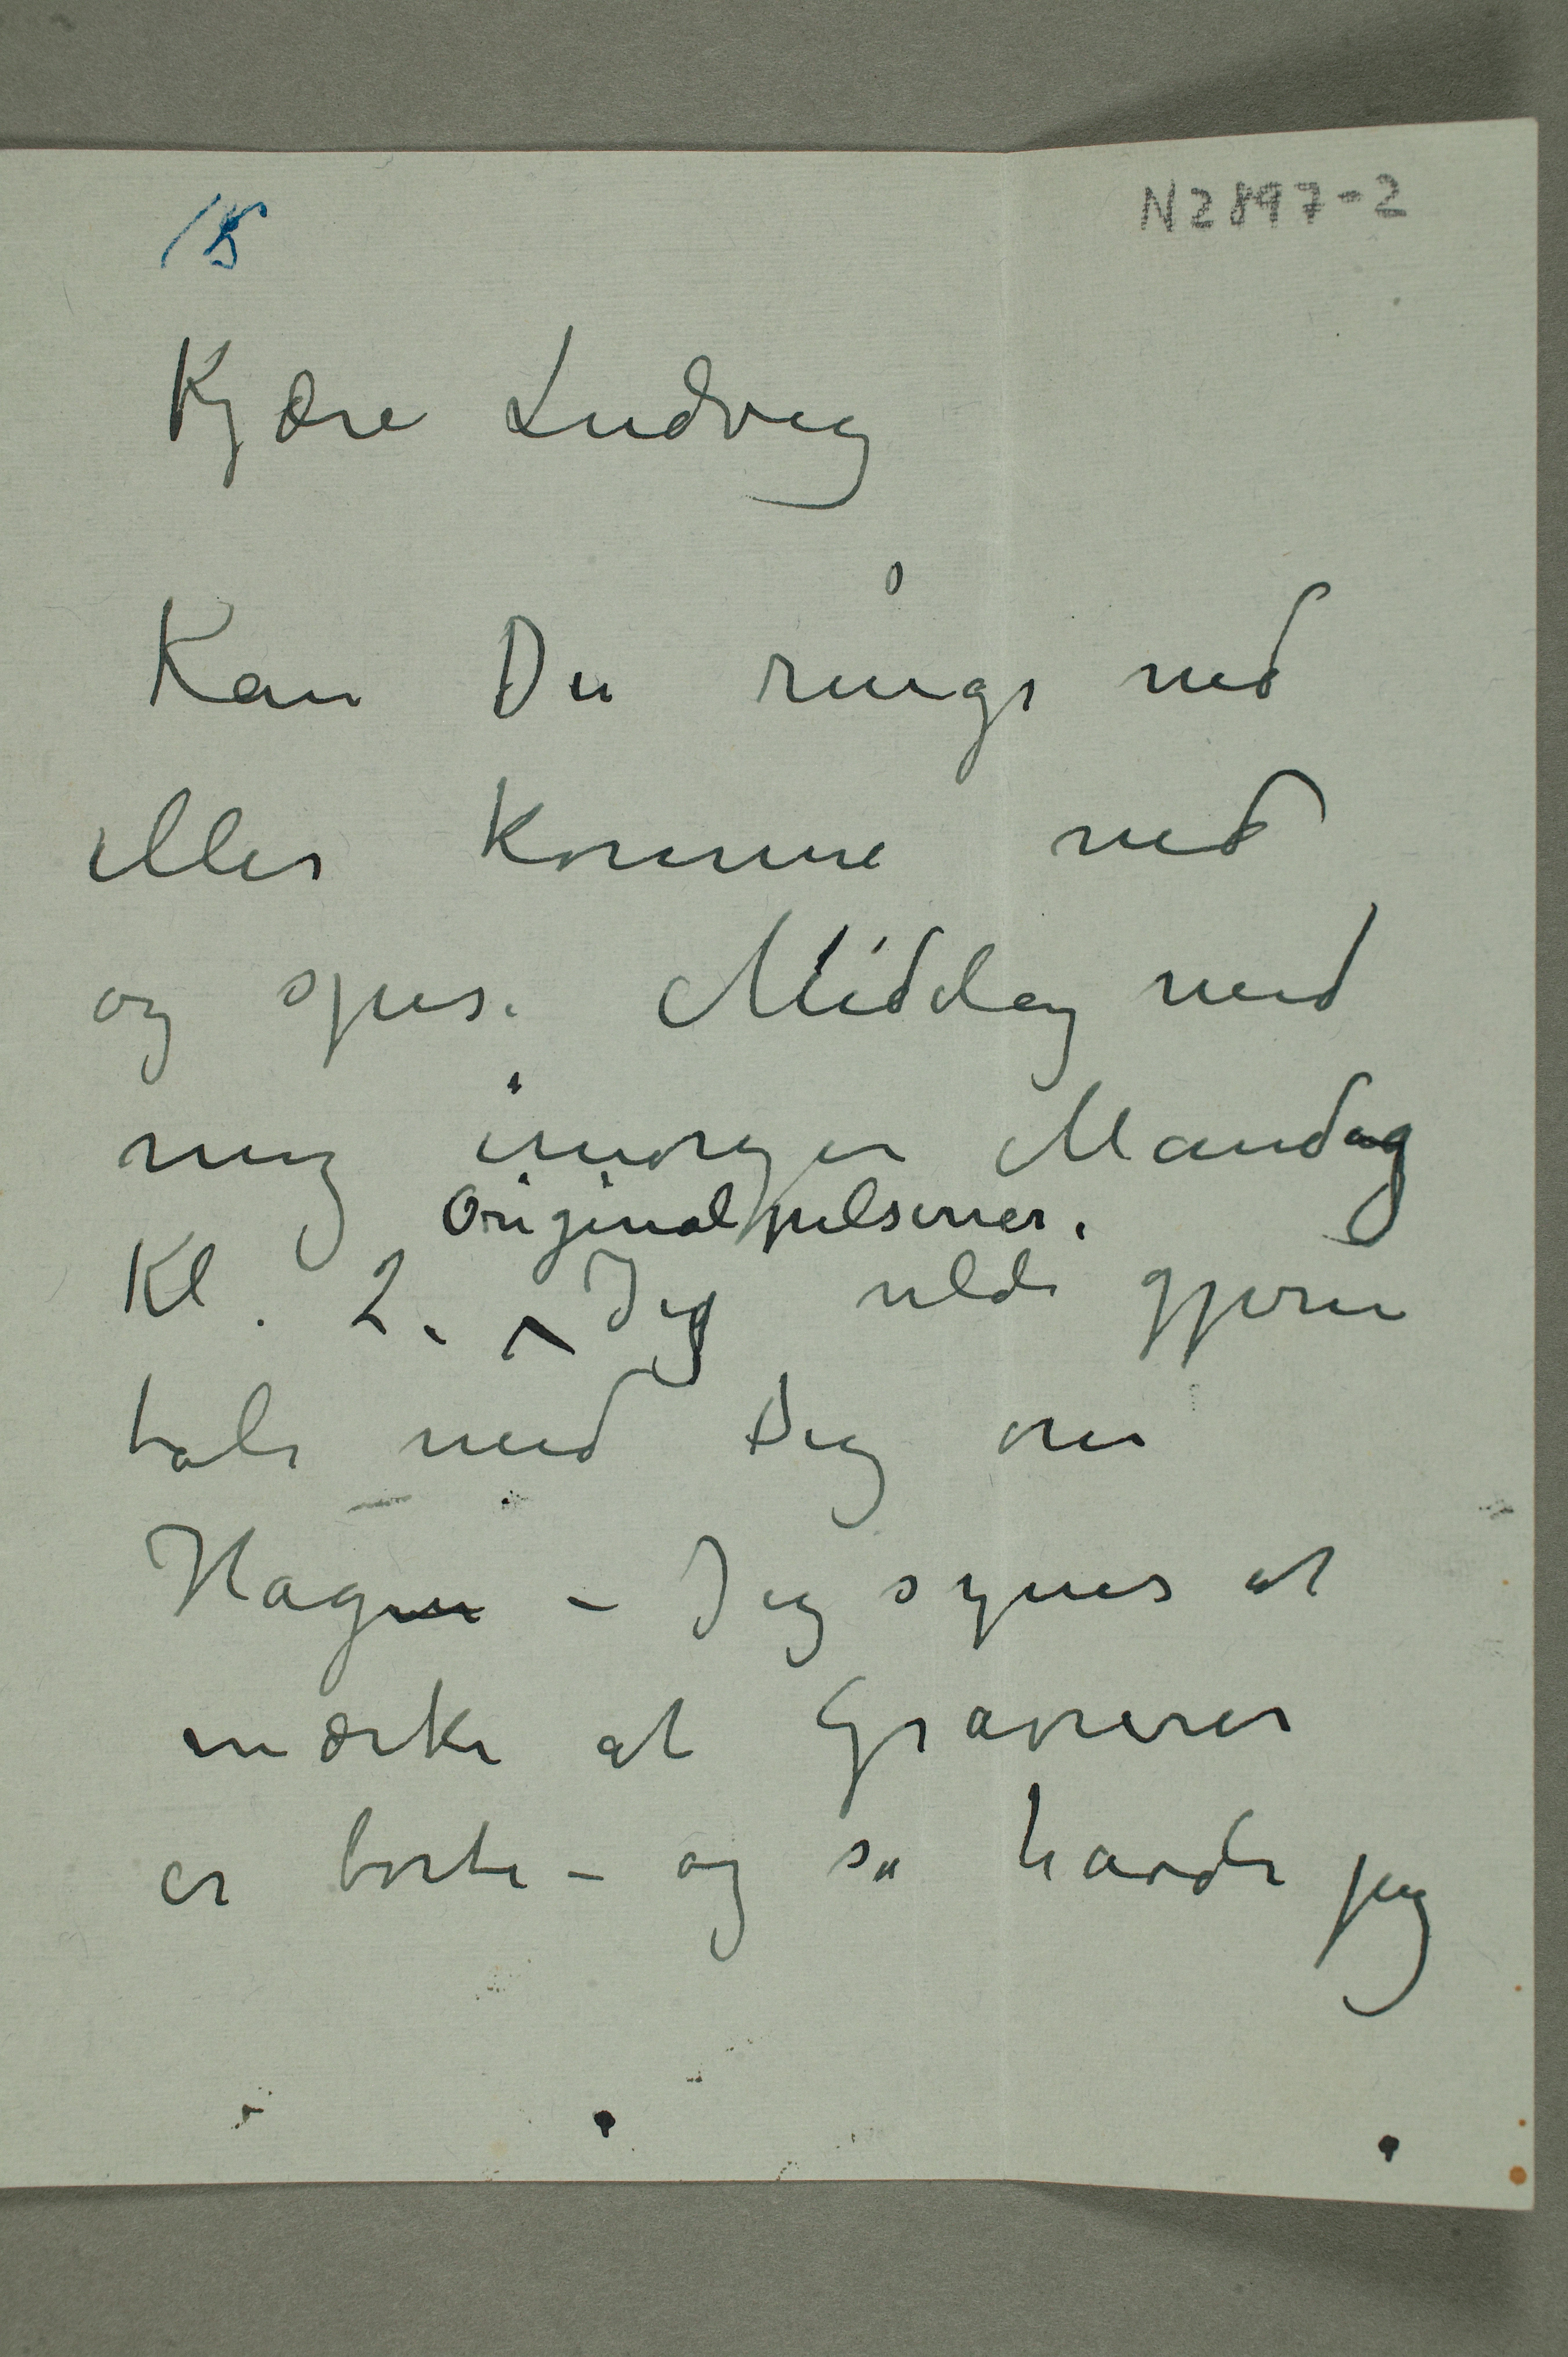 15
N2897-2
Kjære Ludvig
Kan Du ringe ned
eller komme ned
og spise Middag med
mig imorgen Mandag
Originalpilsener.
Kl. 2. ^ Jeg vilde gjerne
tale med Dig om
Hagen – Jeg synes at
mærke at Graverer
er borte – og så havde jeg